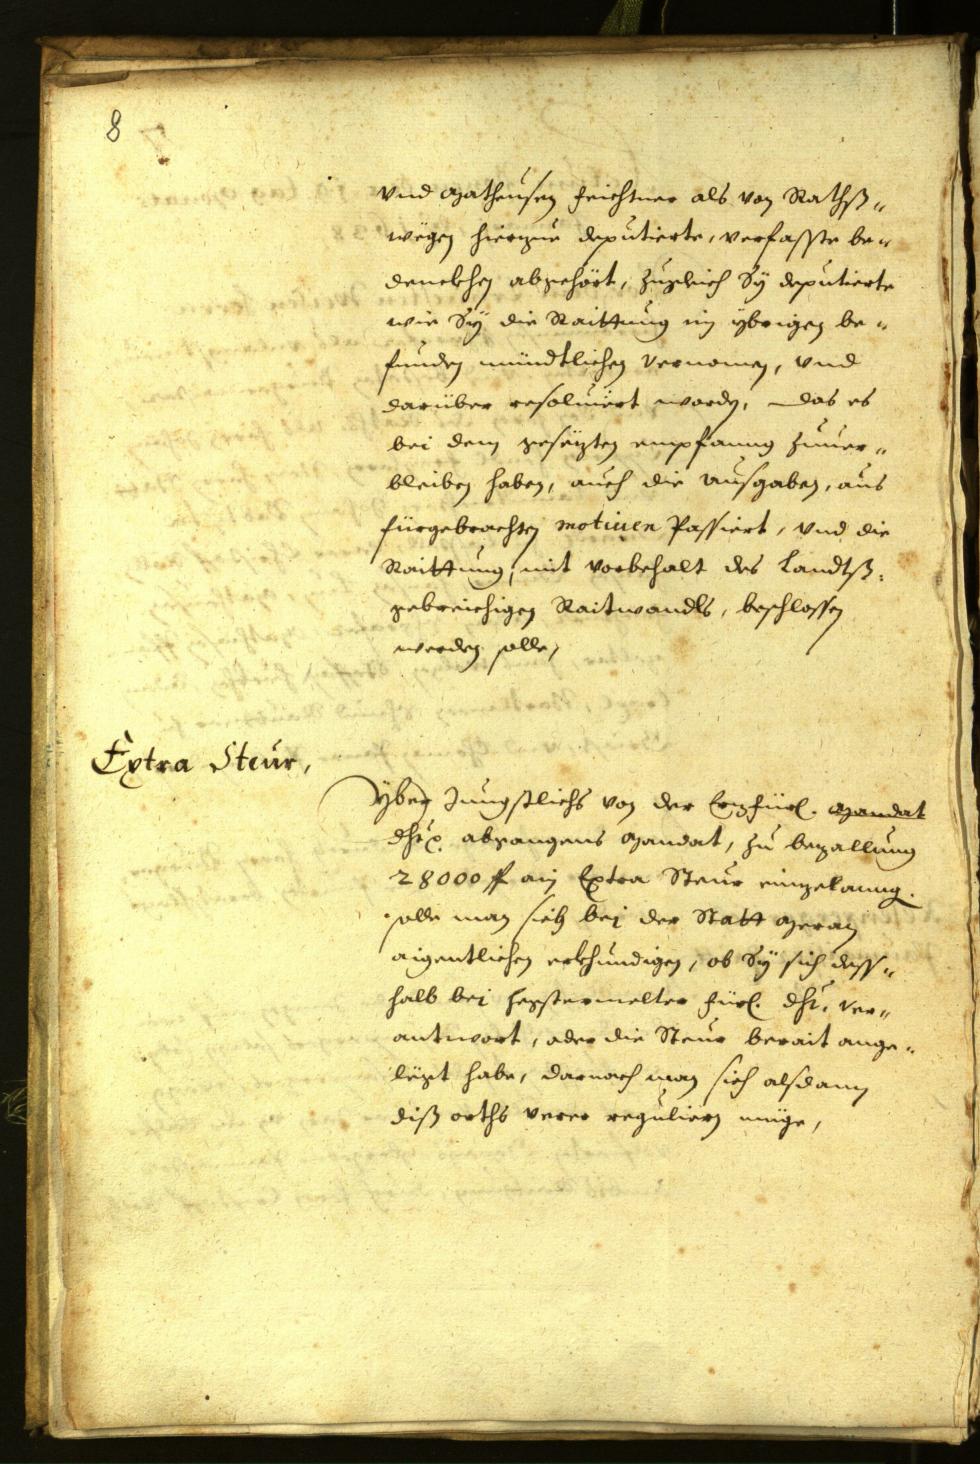 8
vnd Matheusen Feichtner als von Rathß„
wegen hierzue deputierte, verfasste be„
denckhen abgehört, zugleich Sÿ deputierte
wie Sÿ die Raittung im ÿbrigen be„
funden mündtlichen vernomen, vnd
darüber resoluiert worden, das es
bei dem gesezten empfanng zuuer„
bleiben haben, auch die ausgaben, aus
fürgebrachten motiuen Passiert, vnd die
Raittung, mit vorbehalt des Landtß„
gebreichigen Raitwandls, beschlossen
werden solle,
Extra Steur,
Yber Jungstlichs von der Erzfürl. Mandat
Dhtx. abgangens Mandat, zu bezallung
28000 f ain Extra Steur eingelanng.
solle man sich bej der Statt Meran
aigentlichen erkhundigen, ob Sÿ sich dess„
halb bei hegstermelter fürl. Dht. ver„
antwort, oder die Steur berait ange„
legt habe, darnach man sich alsdann
diß orths verer regulieren müge,